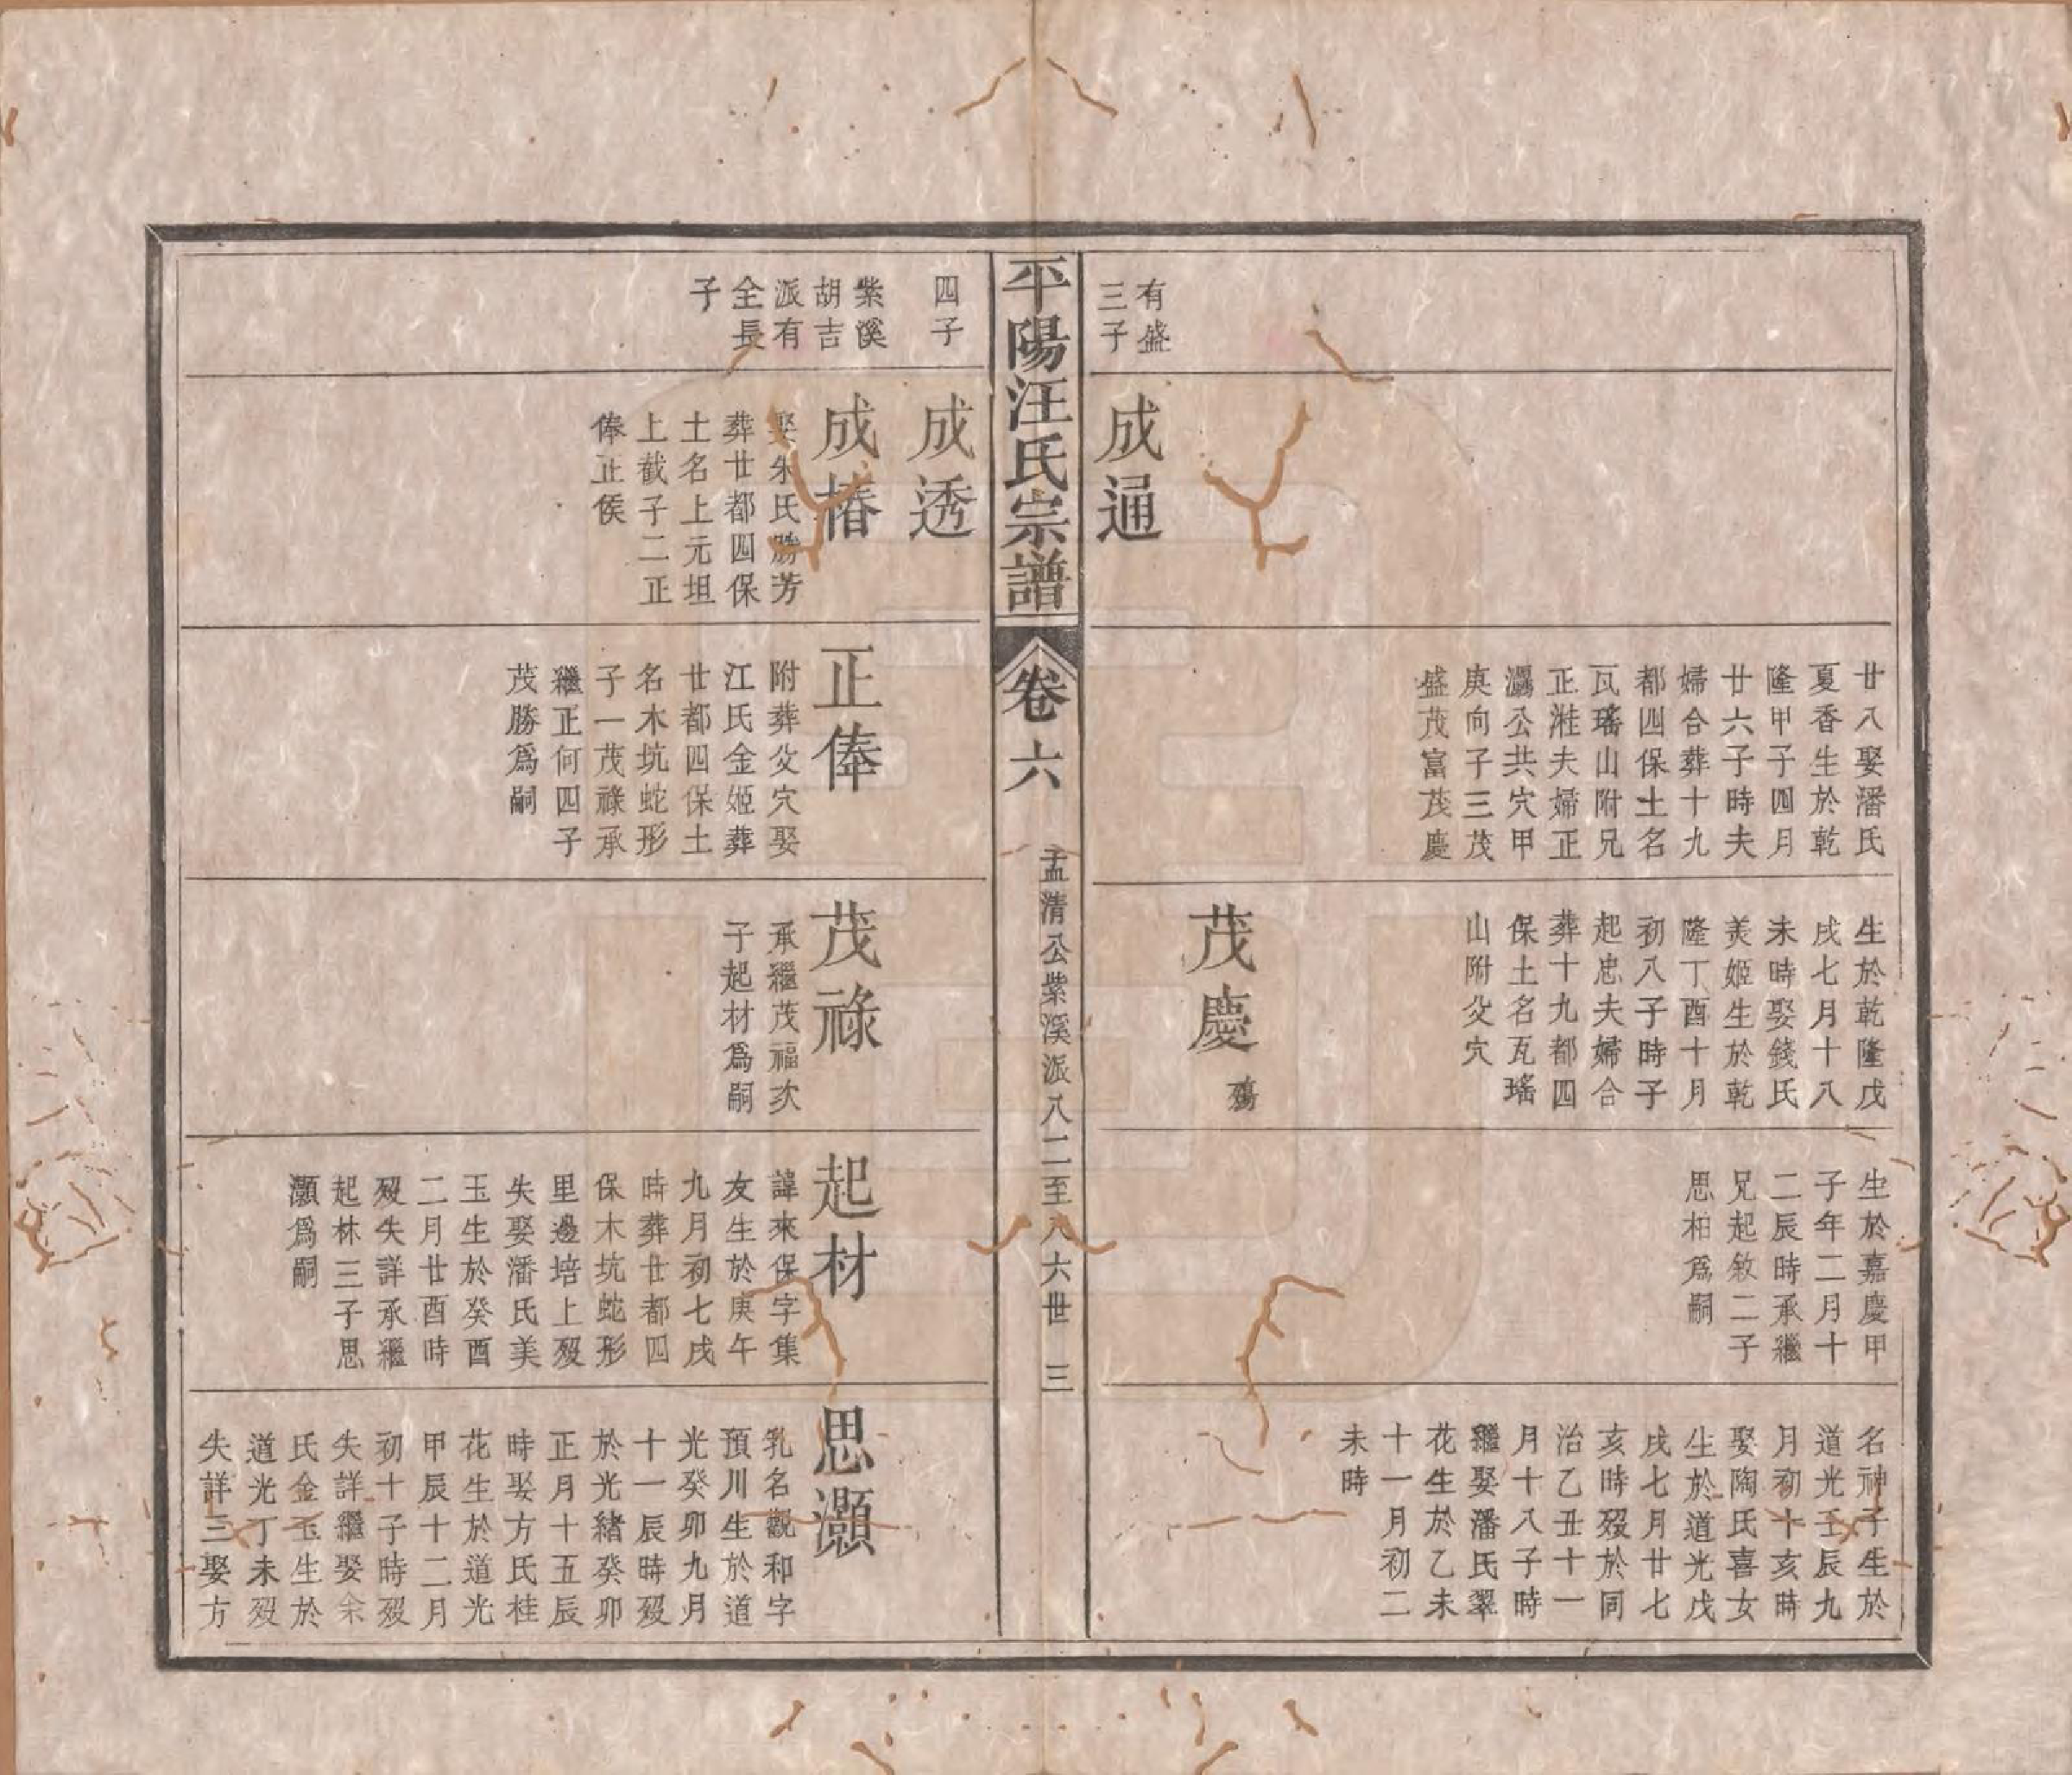 有盛
三子
成通
廿八娶潘氏
夏香生於乾
隆甲子四月
廿六子時夫
婦合葬十九
都四保土名
瓦瑤山附兄
正溎夫婦正
灟公共穴甲
庚向子三茂
盛茂富茂慶
生於乾隆戊
戌七月十八
未時娶錢氏
美姬生於乾
隆丁酉十月
初八子時子
起忠夫婦合
葬十九都四
保土名瓦瑤
山附父穴
茂慶
殤
生於嘉慶甲
子年二月十
二辰時承繼
兄起敘二子
思柏爲嗣
名神子生於
道光壬辰九
月初十亥時
娶陶氏喜女
生於道光戊
戌七月廿七
亥時歿於同
治乙丑十一
月十八子時
繼娶潘氏翠
花生於乙未
十一月初二
未時
平陽汪氏宗譜
卷六
孟清公紫溪派八二至八六世 三
四子
紫溪
胡吉
派有
全長
子
成透
成椿
娶朱氏勝芳
葬廿都四保
土名上元坦
上截子二正
俸正侯
正俸
附葬父穴娶
江氏金姬葬
廿都四保土
名木坑蛇形
子一茂祿承
繼正何四子
茂勝爲嗣
茂祿
承繼茂福次
子起材爲嗣
起材
諱來保字集
友生於庚午
九月初七戌
時葬廿都四
保木坑蛇形
里邊培上歿
失娶潘氏美
玉生於癸酉
二月廿酉時
歿失詳承繼
起林三子思
灝爲嗣
思灝
乳名觀和字
預川生於道
光癸卯九月
十一辰時歿
於光緒癸卯
正月十五辰
時娶方氏桂
花生於道光
甲辰十二月
初十子時歿
失詳繼娶余
氏金玉生於
道光丁未歿
失詳三娶方